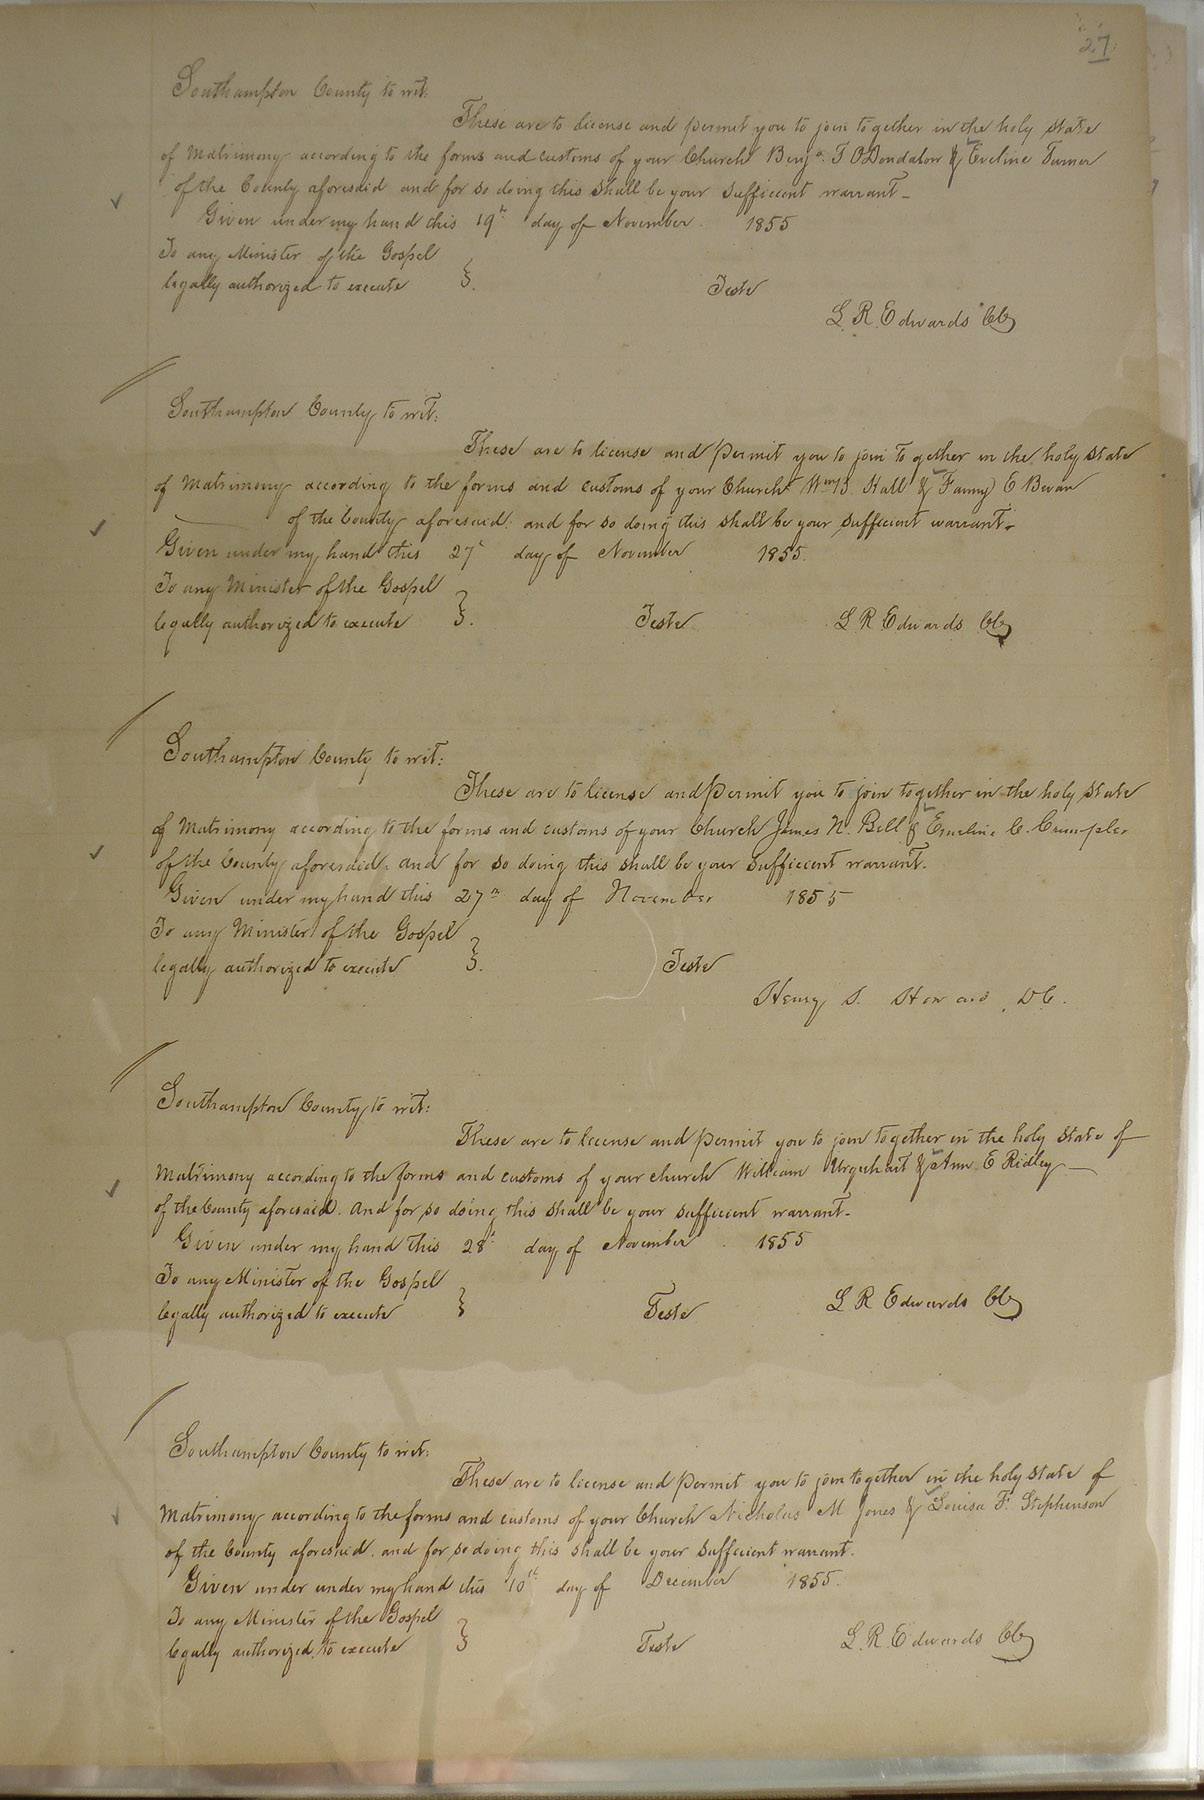 27
Southampton County to wit:
These are to license and permit you to join together in the holy state
of Matrimony according to the forms and customs of your Church Benja. T ODondalow & Eveline Turner
of the County aforesaid and for so doing this shall be your sufficient warrant-
Given under my hand this 19th day of November 1855
To any Minister of the Gospel
legally authorized to execute }. Teste
L. R. Edwards Clk
Southampton County to wit:
These are to license and permit you to join to gether in the holy state
of Matrimony according to the forms and customs of your Church Wm B. Hall & Fanny E Bevan
of the County aforesaid. and for so doing this shall be your sufficient warrant-
Given under my hand this 27th day of November 1855.
To any Minister of the Gospel
legally authorized to execute }. Teste L R Edwards Clk
Southampton County to wit:
These are to license and permit you to join together in the holy state
of Matrimony according to the forms and customs of your Church James N. Bell & Emeline C. Crumpler
of the County aforesaid. and for so doing this shall be your sufficient warrant.
Given under my hand this 27th day of November 1855
To any Minister of the Gospel
legally authorized to execute }. Teste
Henry S. Howard, D C.
Southampton County to wit:
These are to license and permit you to join together in the holy state of
Matrimony according to the forms and customs of your church William Urquhart & Ann E Ridley
of the County aforesaid. and for so doing this shall be your sufficient warrant-
Given under my hand this 28th day of November 1855
To any Minister of the Gospel
legally authorized to execute } Teste L R Edwards Clk
Southampton County to wit:
These are to license and permit you to join together in the holy state of
Matrimony according to the forms and customs of your Church Nicholas M Jones & Louisa F. Stephenson
of the County aforesaid. and for so doing this shall be your sufficient warrant.
Given under under my hand this 10th day of December 1855.
To any Minister of the Gospel
legally authorized to execute } Teste L. R. Edwards Clk